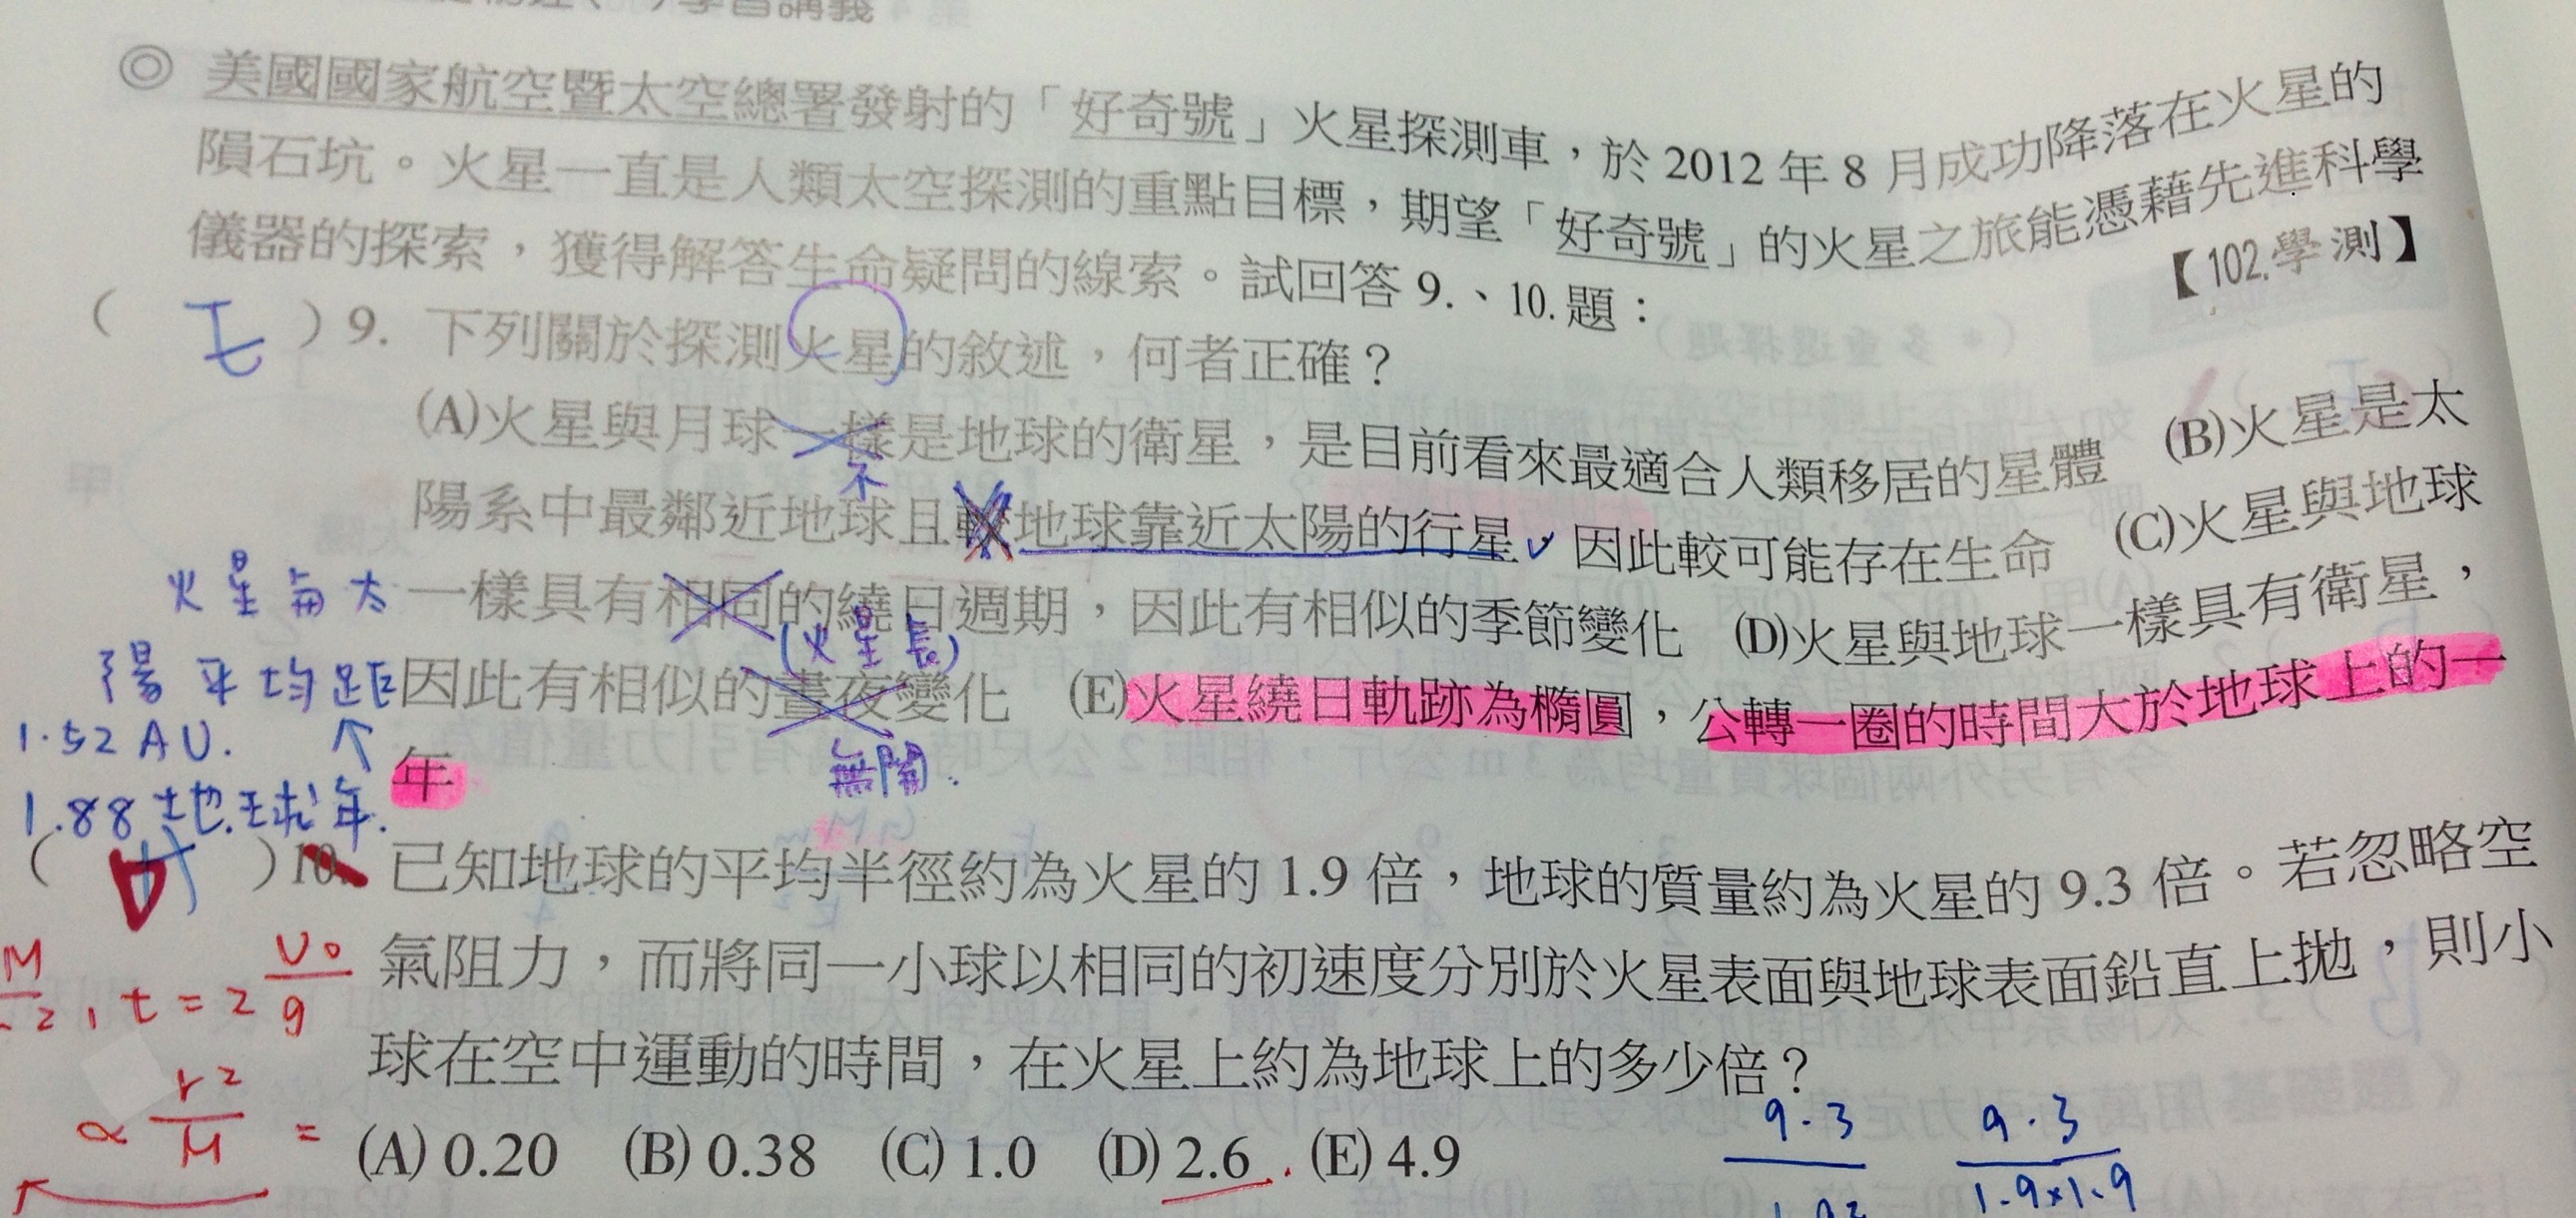 學習講義
◎ 美國國家航空暨太空總署發射的「好奇號」火星探測車，於 2012 年 8 月成功降落在火星的
隕石坑。火星一直是人類太空探測的重點目標，期望「好奇號」的火星之旅能憑藉先進科學
儀器的探索，獲得解答生命疑問的線索。試回答 9.、10. 題：
【102.學測】
( E ) 9. 下列關於探測火星的敘述，何者正確？
(A)火星與月球一樣是地球的衛星，是目前看來最適合人類移居的星體 (B)火星是太
不
陽系中最鄰近地球且較地球靠近太陽的行星，因此較可能存在生命 (C)火星與地球
一樣具有相同的繞日週期，因此有相似的季節變化 (D)火星與地球一樣具有衛星，
(火星長)
因此有相似的晝夜變化 (E)火星繞日軌跡為橢圓，公轉一圈的時間大於地球上的一
無關.
年
火星每太
陽平均距
1.52 AU. ↑
1.88 地球年.
( D ) 10. 已知地球的平均半徑約為火星的 1.9 倍，地球的質量約為火星的 9.3 倍。若忽略空
氣阻力，而將同一小球以相同的初速度分別於火星表面與地球表面鉛直上拋，則小
球在空中運動的時間，在火星上約為地球上的多少倍？
(A) 0.20 (B) 0.38 (C) 1.0 (D) 2.6 (E) 4.9
M
2, t = 2 V0/g
∝ r²/M =
9.3 9.3
1.9×1.9